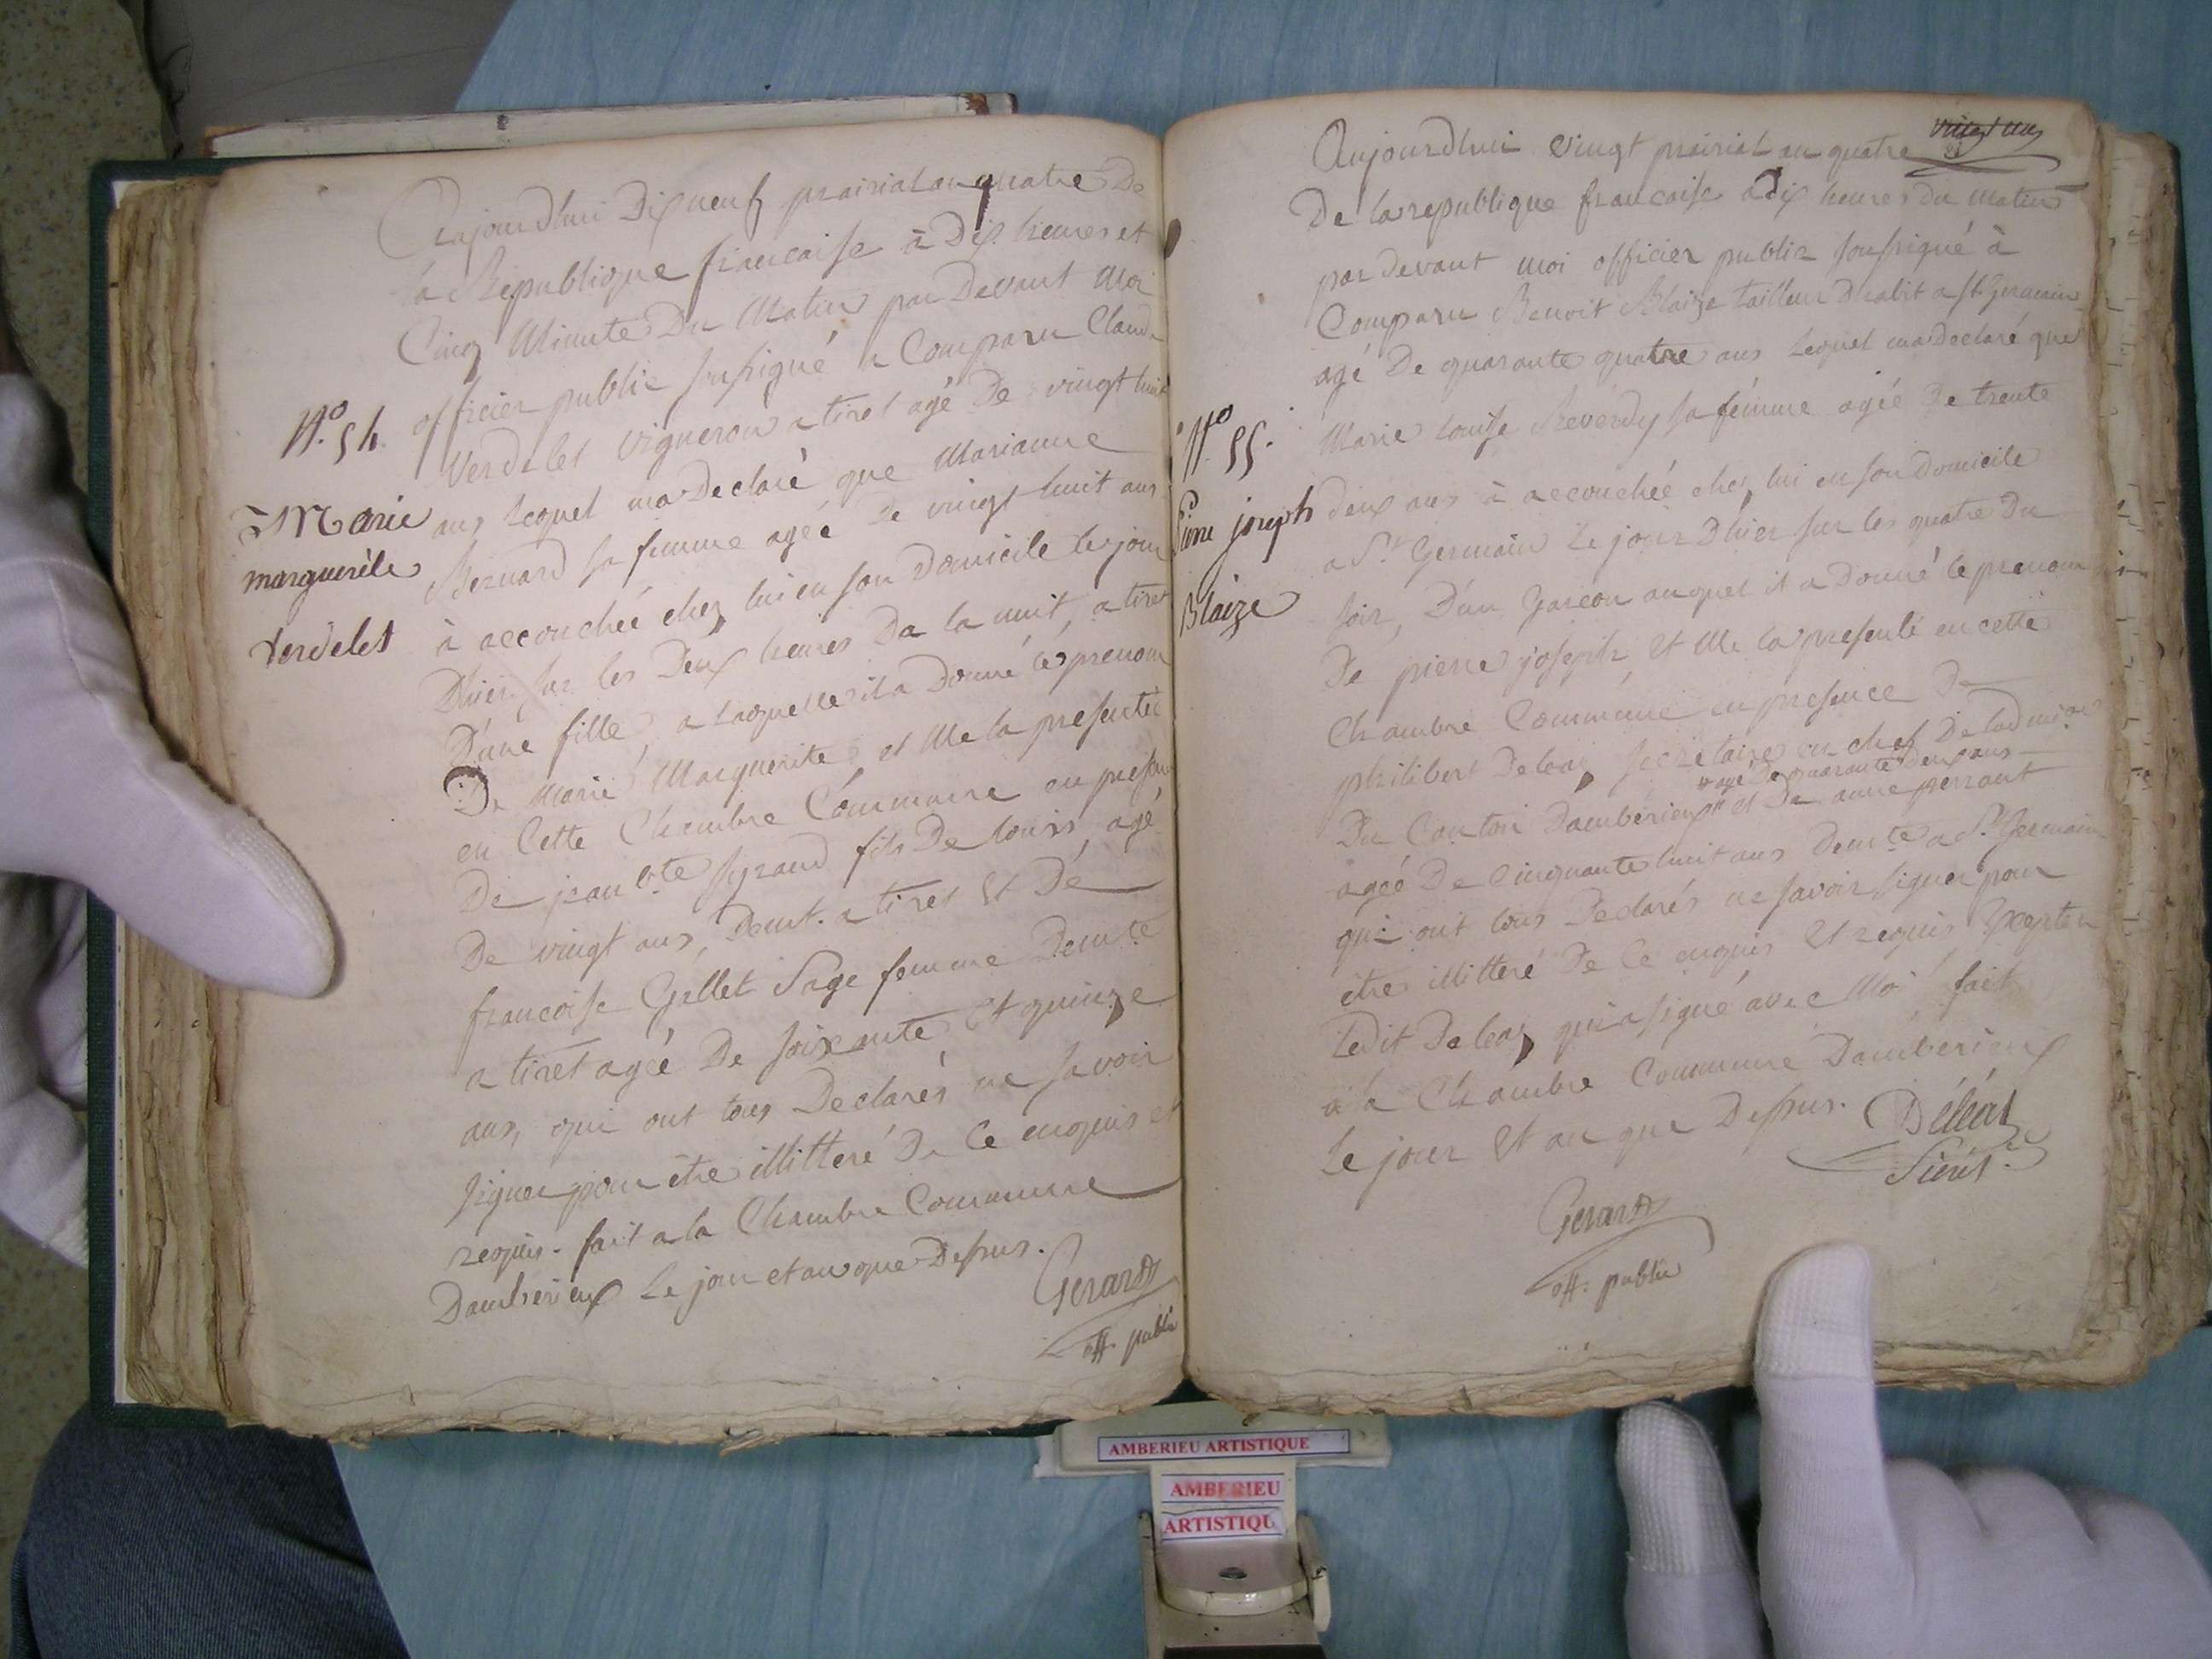 Aujourdhui Dix neuf prairial an quatre De
la Republique francaise à Dix heures et
Cinq Minute Du Matin par Devant Moi
officier public susigné a Comparu Claude
Verdelet vigneron a tiret agé De vingt huit
ans, Lequel ma Declaré que Marianne
Bernard sa femme ageé De vingt huit ans
à accouchée chez lui en son Domicile le jour
Dhier sur les Deux heures De la nuit, a tiret
D'une fille, a Laquelle il a Donné le prenom
De Marie Marguerite, et Me la presentée
en Cette Chambre Commune en presence
De jean bte grand fils De louis, agé
De vingt ans, Demt. a tiret Et De
francoise Gellet Sage femme Demte
a tiret ageé De soixente et quinze
ans, qui ont tous Declarés ne savoir
signer pour être illitteré De Ce enquis et
requis. fait a la Chambre Commune
Dambérieux Le jour et an que Dessus.
Gerard
off. public
N.º 54.
Marie
marguerite
verdelet
vingt un
Aujourdhui vingt prairial an quatre
De la republique francaise a dix heures du matin
par devant moi officier public sousigné à
Comparu Benoit Blaize tailleur Dhabit a St. Germain
agé De quarante quatre ans Lequel ma Declaré que
Marie Louise Reverdy sa fémme ageé De trente
deux ans à accouchéé chez lui en son Domicile
a St Germain Le jour D'hier sur les quatre Du
soir, D'un Garcon auquel il a Donné le prenom
De pierre joseph, Et Me la presenté en cette
Chambre Commune en presence De
philibert Deleaz secretaire en chef De ladmion
agé De quarante Deux ans
Du Canton Dambérieux et De anne perrant
ageé De Cinquante huit ans Demte a St. Germain
qui ont tous Declarés ne savoir signer pour
être illitteré De Ce enquis Et requis Excepter
Ledit Deleaz qui a signé avec Moi fait
a la Chambre Commune Dambérieux
Le jour Et an que Dessus.
Déléaz
Gerard
off. public
N.º 55.
Pierre joseph
Blaize
AMBERIEU ARTISTIQUE
AMBERIEU
ARTISTIQU